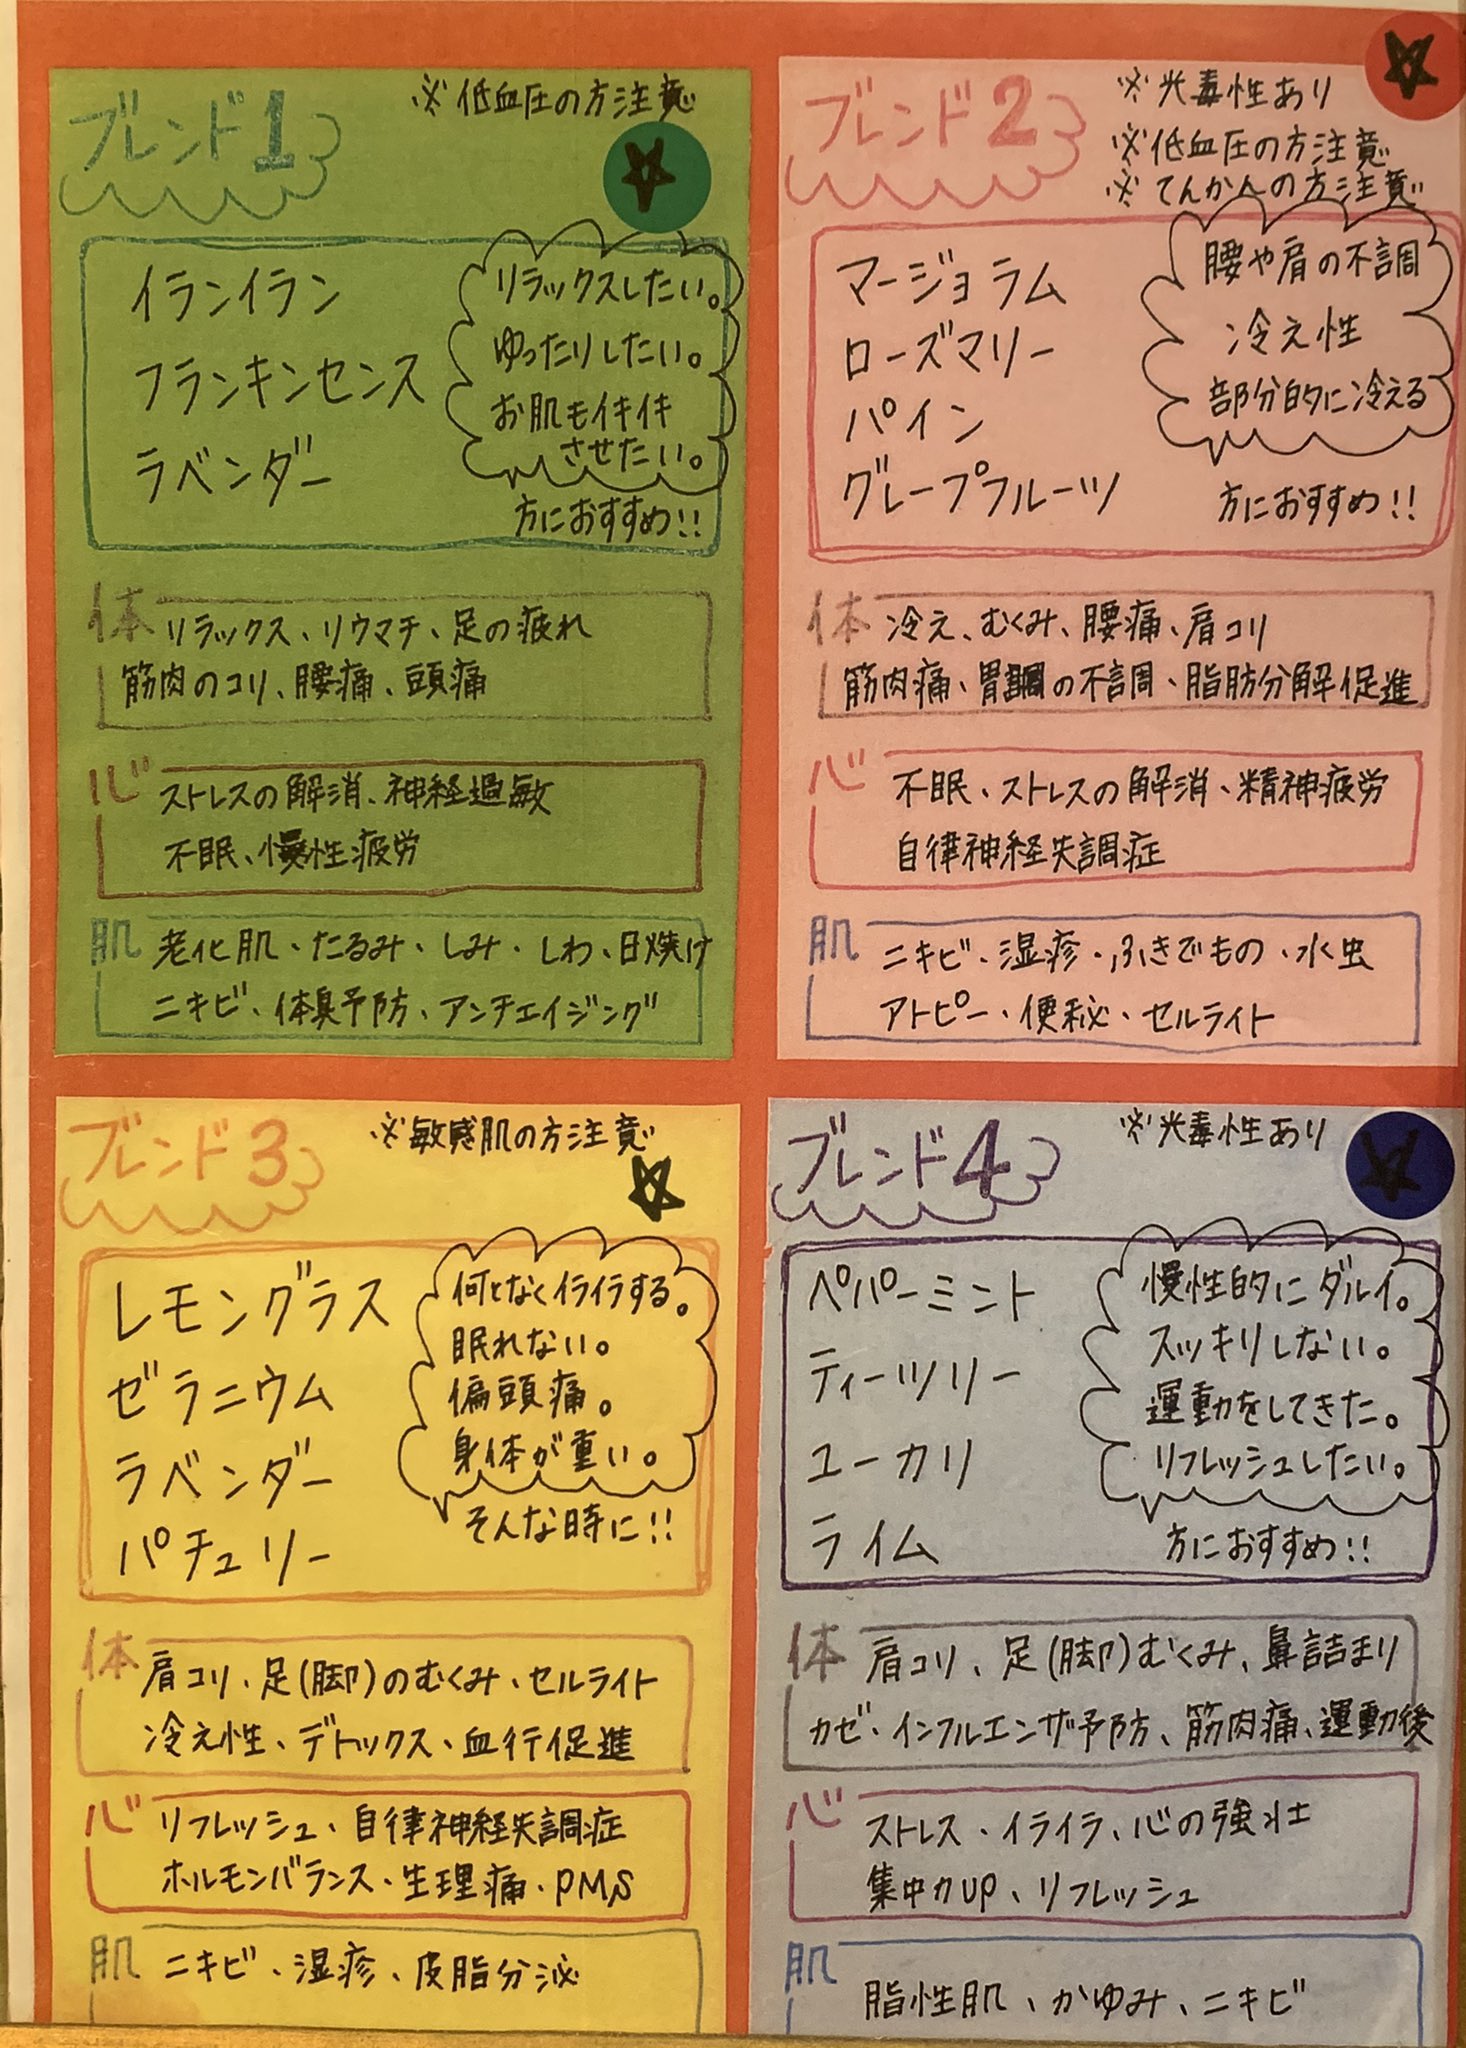 ブレンド1
※低血圧の方注意
イランイラン
フランキンセンス
ラベンダー
リラックスしたい。
ゆったりしたい。
お肌もイキイキ
させたい。
方におすすめ!!
体
リラックス、リウマチ、足の疲れ
筋肉のコリ、腰痛、頭痛
心
ストレスの解消、神経過敏
不眠、慢性疲労
肌
老化肌・たるみ・しみ・しわ、日焼け
ニキビ・体臭予防・アンチエイジング
ブレンド2
※光毒性あり
※低血圧の方注意
※てんかんの方注意
マージョラム
ローズマリー
パイン
グレープフルーツ
腰や肩の不調
冷え性
部分的に冷える
方におすすめ!!
体
冷え、むくみ、腰痛、肩コリ
筋肉痛、胃調の不調、脂肪分解促進
心
不眠、ストレスの解消、精神疲労
自律神経失調症
肌
ニキビ、湿疹・ふきでもの・水虫
アトピー・便秘・セルライト
ブレンド3
※敏感肌の方注意
レモングラス
ゼラニウム
ラベンダー
パチュリー
何となくイライラする。
眠れない。
偏頭痛。
身体が重い。
そんな時に!!
体
肩コリ、足(脚)のむくみ、セルライト
冷え性、デトックス、血行促進
心
リフレッシュ、自律神経失調症
ホルモンバランス・生理痛・PMS
肌
ニキビ、湿疹、皮脂分泌
ブレンド4
※光毒性あり
ペパーミント
ティーツリー
ユーカリ
ライム
慢性的にダルイ。
スッキリしない。
運動をしてきた。
リフレッシュしたい。
方におすすめ!!
体
肩コリ、足(脚)むくみ、鼻詰まり
カゼ、インフルエンザ予防、筋肉痛、運動後
心
ストレス・イライラ、心の強壮
集中力UP、リフレッシュ
肌
脂性肌、かゆみ、ニキビ